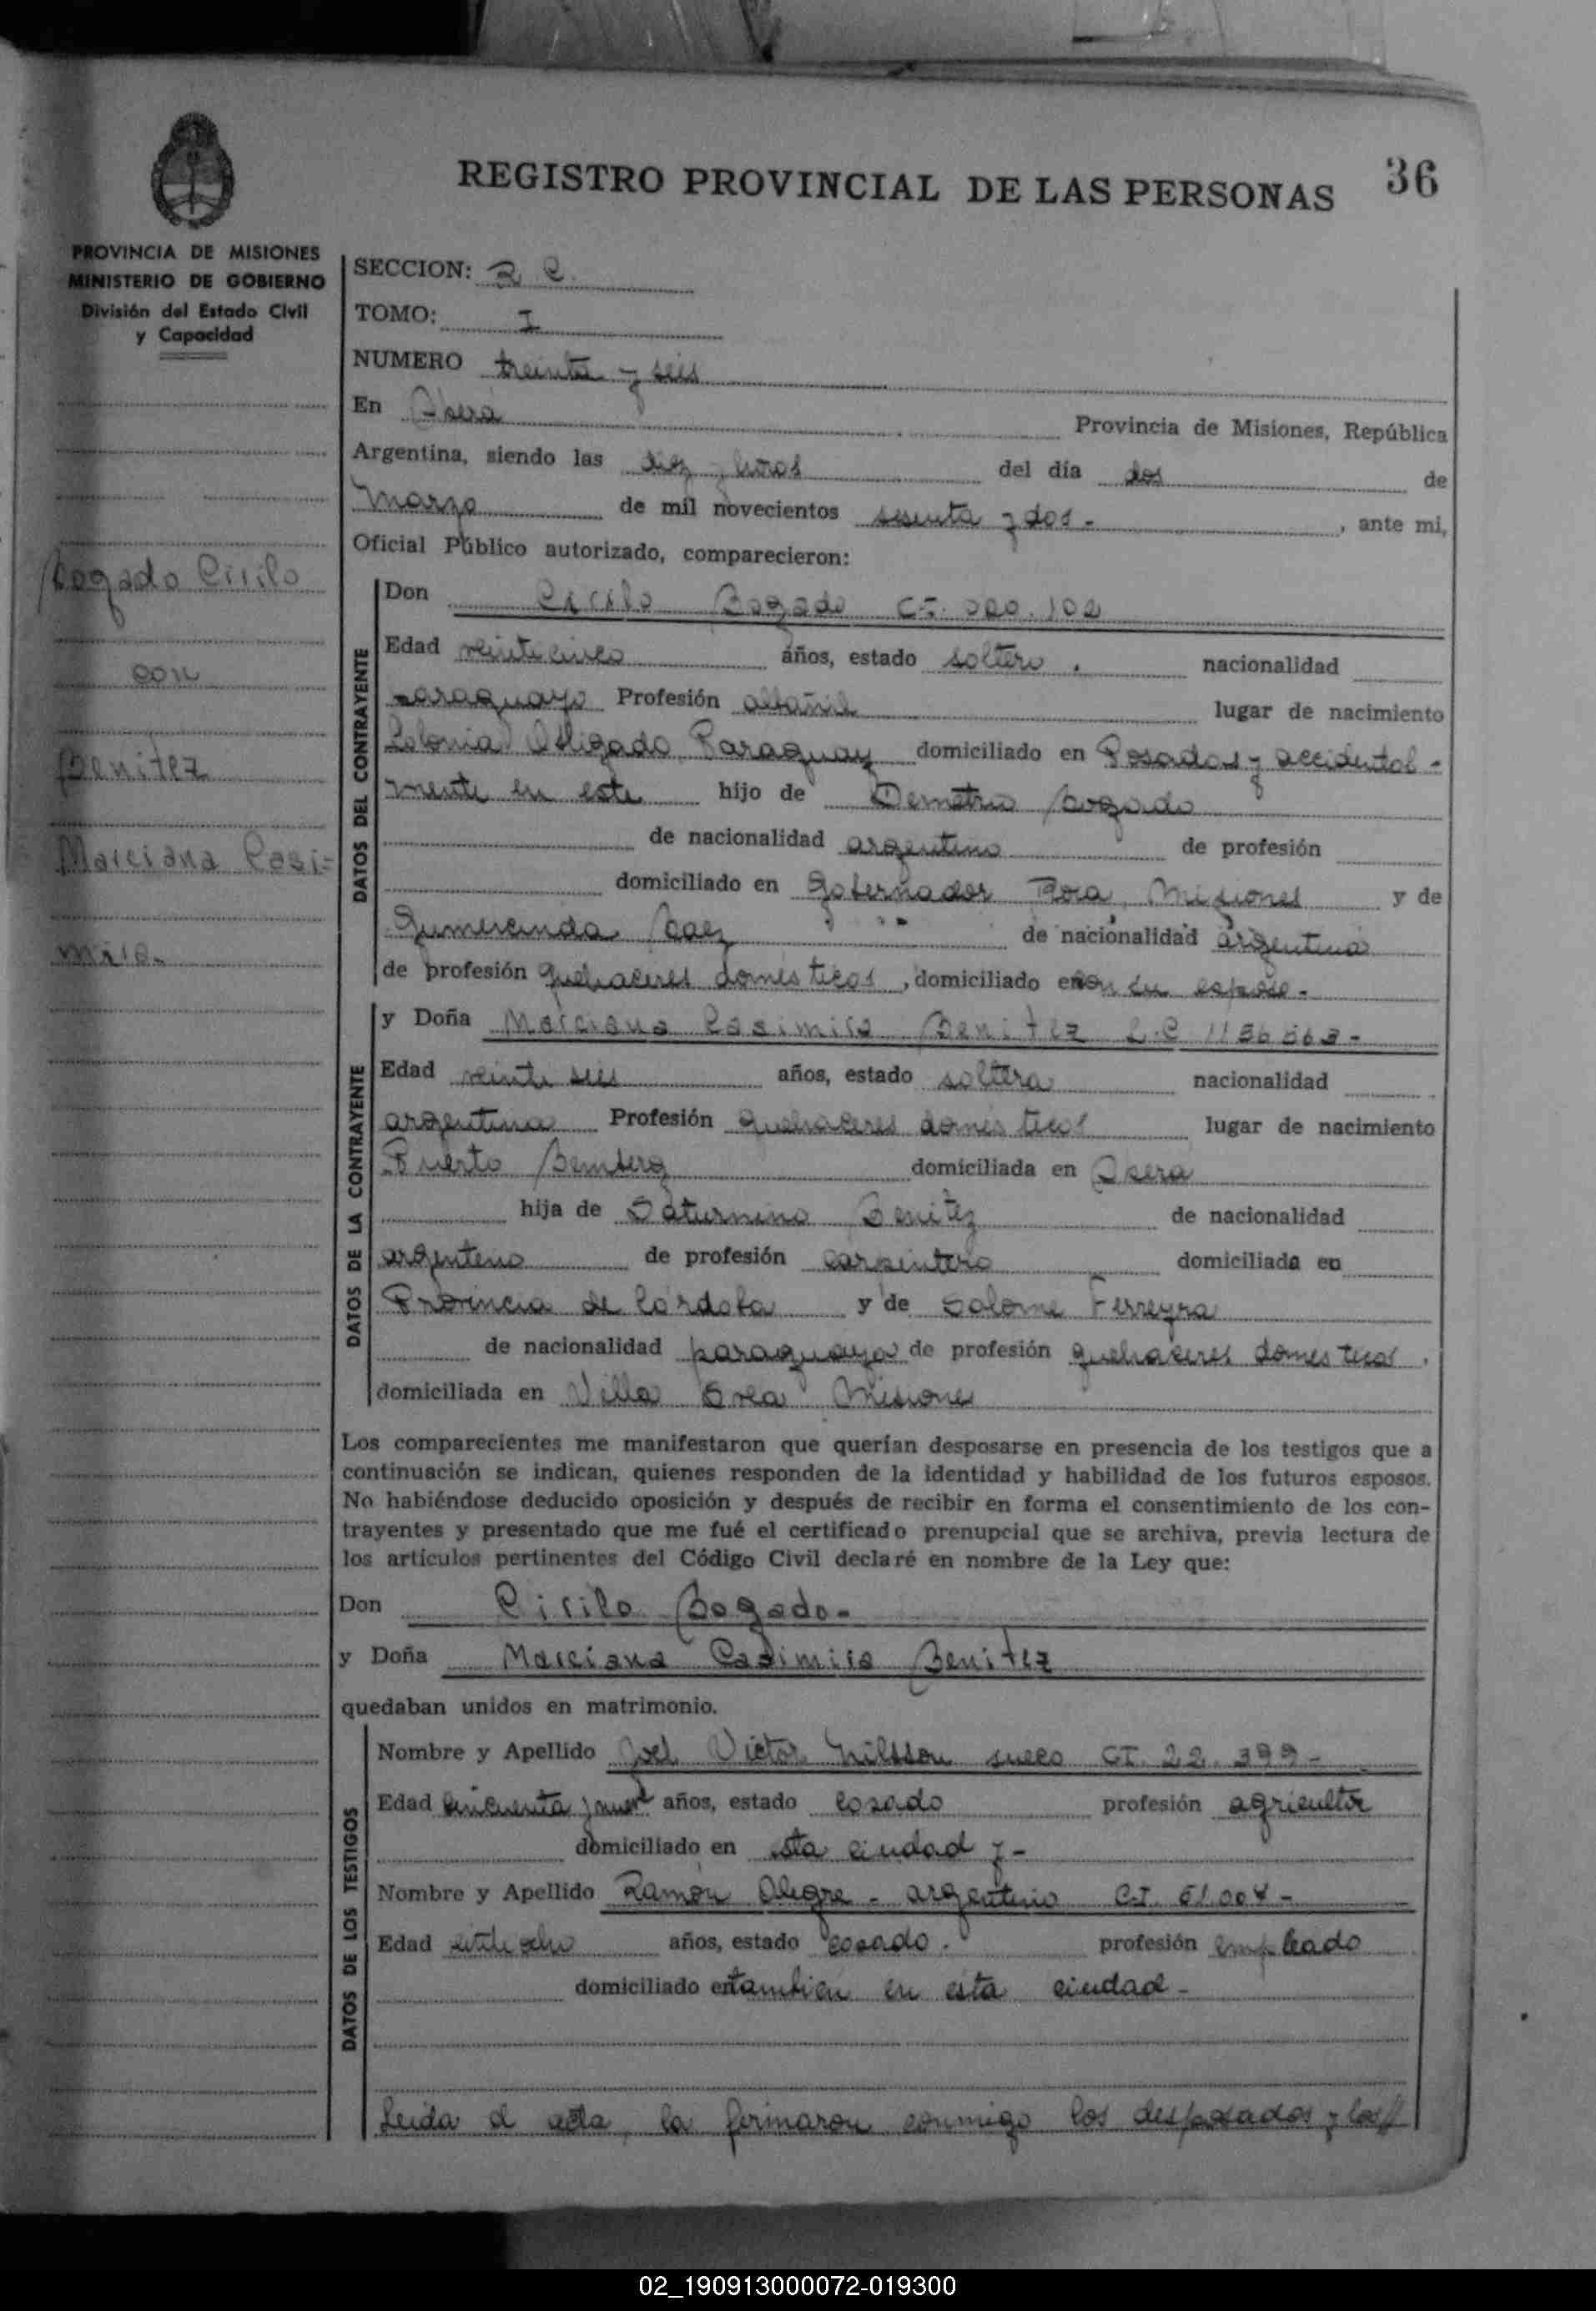 REGISTRO PROVINCIAL DE LAS PERSONAS 36
PROVINCIA DE MISIONES
MINISTERIO DE GOBIERNO
División del Estado Civil
y Capacidad
Bogado Cirilo
con
Benitez
Marciana Casi-
mira.
SECCION: 2 C.
TOMO: I
NUMERO treinta y seis
En Obera Provincia de Misiones, República
Argentina, siendo las diez horas del día dos de
marzo de mil novecientos sesenta y dos - , ante mi,
Oficial Público autorizado, comparecieron:
DATOS DEL CONTRAYENTE
Don Cirilo Bogado CI.
Edad veinte cinco años, estado soltero. nacionalidad
paraguayo Profesión albañil lugar de nacimiento
Colonia Obligado, Paraguay domiciliado en Posadas y accidental-
mente en esta hijo de Demetrio Bogado
de nacionalidad argentino de profesión
domiciliado en Gobernador Roca, Misiones y de
Gumercinda Baez de nacionalidad argentina
de profesión quehaceres domesticos, domiciliado en con su esposo.-
DATOS DE LA CONTRAYENTE
y Doña Marciana Casimira Benitez L.C
Edad veinte seis años, estado soltera nacionalidad
argentina Profesión quehaceres domesticos lugar de nacimiento
Puerto Bemberg domiciliada en Obera
hija de Saturnino Benitez de nacionalidad
argentino de profesión carpintero domiciliada en
Provincia de Córdoba y de Salome Ferreyra
de nacionalidad paraguaya de profesión quehaceres domesticos.
domiciliada en Villa Misiones
Los comparecientes me manifestaron que querían desposarse en presencia de los testigos que a
continuación se indican, quienes responden de la identidad y habilidad de los futuros esposos.
No habiéndose deducido oposición y después de recibir en forma el consentimiento de los con-
trayentes y presentado que me fué el certificado prenupcial que se archiva, previa lectura de
los artículos pertinentes del Código Civil declaré en nombre de la Ley que:
Don Cirilo Bogado-
y Doña Marciana Casimira Benitez
quedaban unidos en matrimonio.
DATOS DE LOS TESTIGOS
Nombre y Apellido Joel Victor Nilsson sueco CI. 22.399-
Edad cincuenta y nueve años, estado casado profesión agricultor
domiciliado en esta ciudad y-
Nombre y Apellido Ramon Alegre - argentino C.I. 61.004-
Edad años, estado casado. profesión empleado
domiciliado en tambien en esta ciudad-
Leida el acta, la firmaron conmigo los desposados y los
02_190913000072-019300